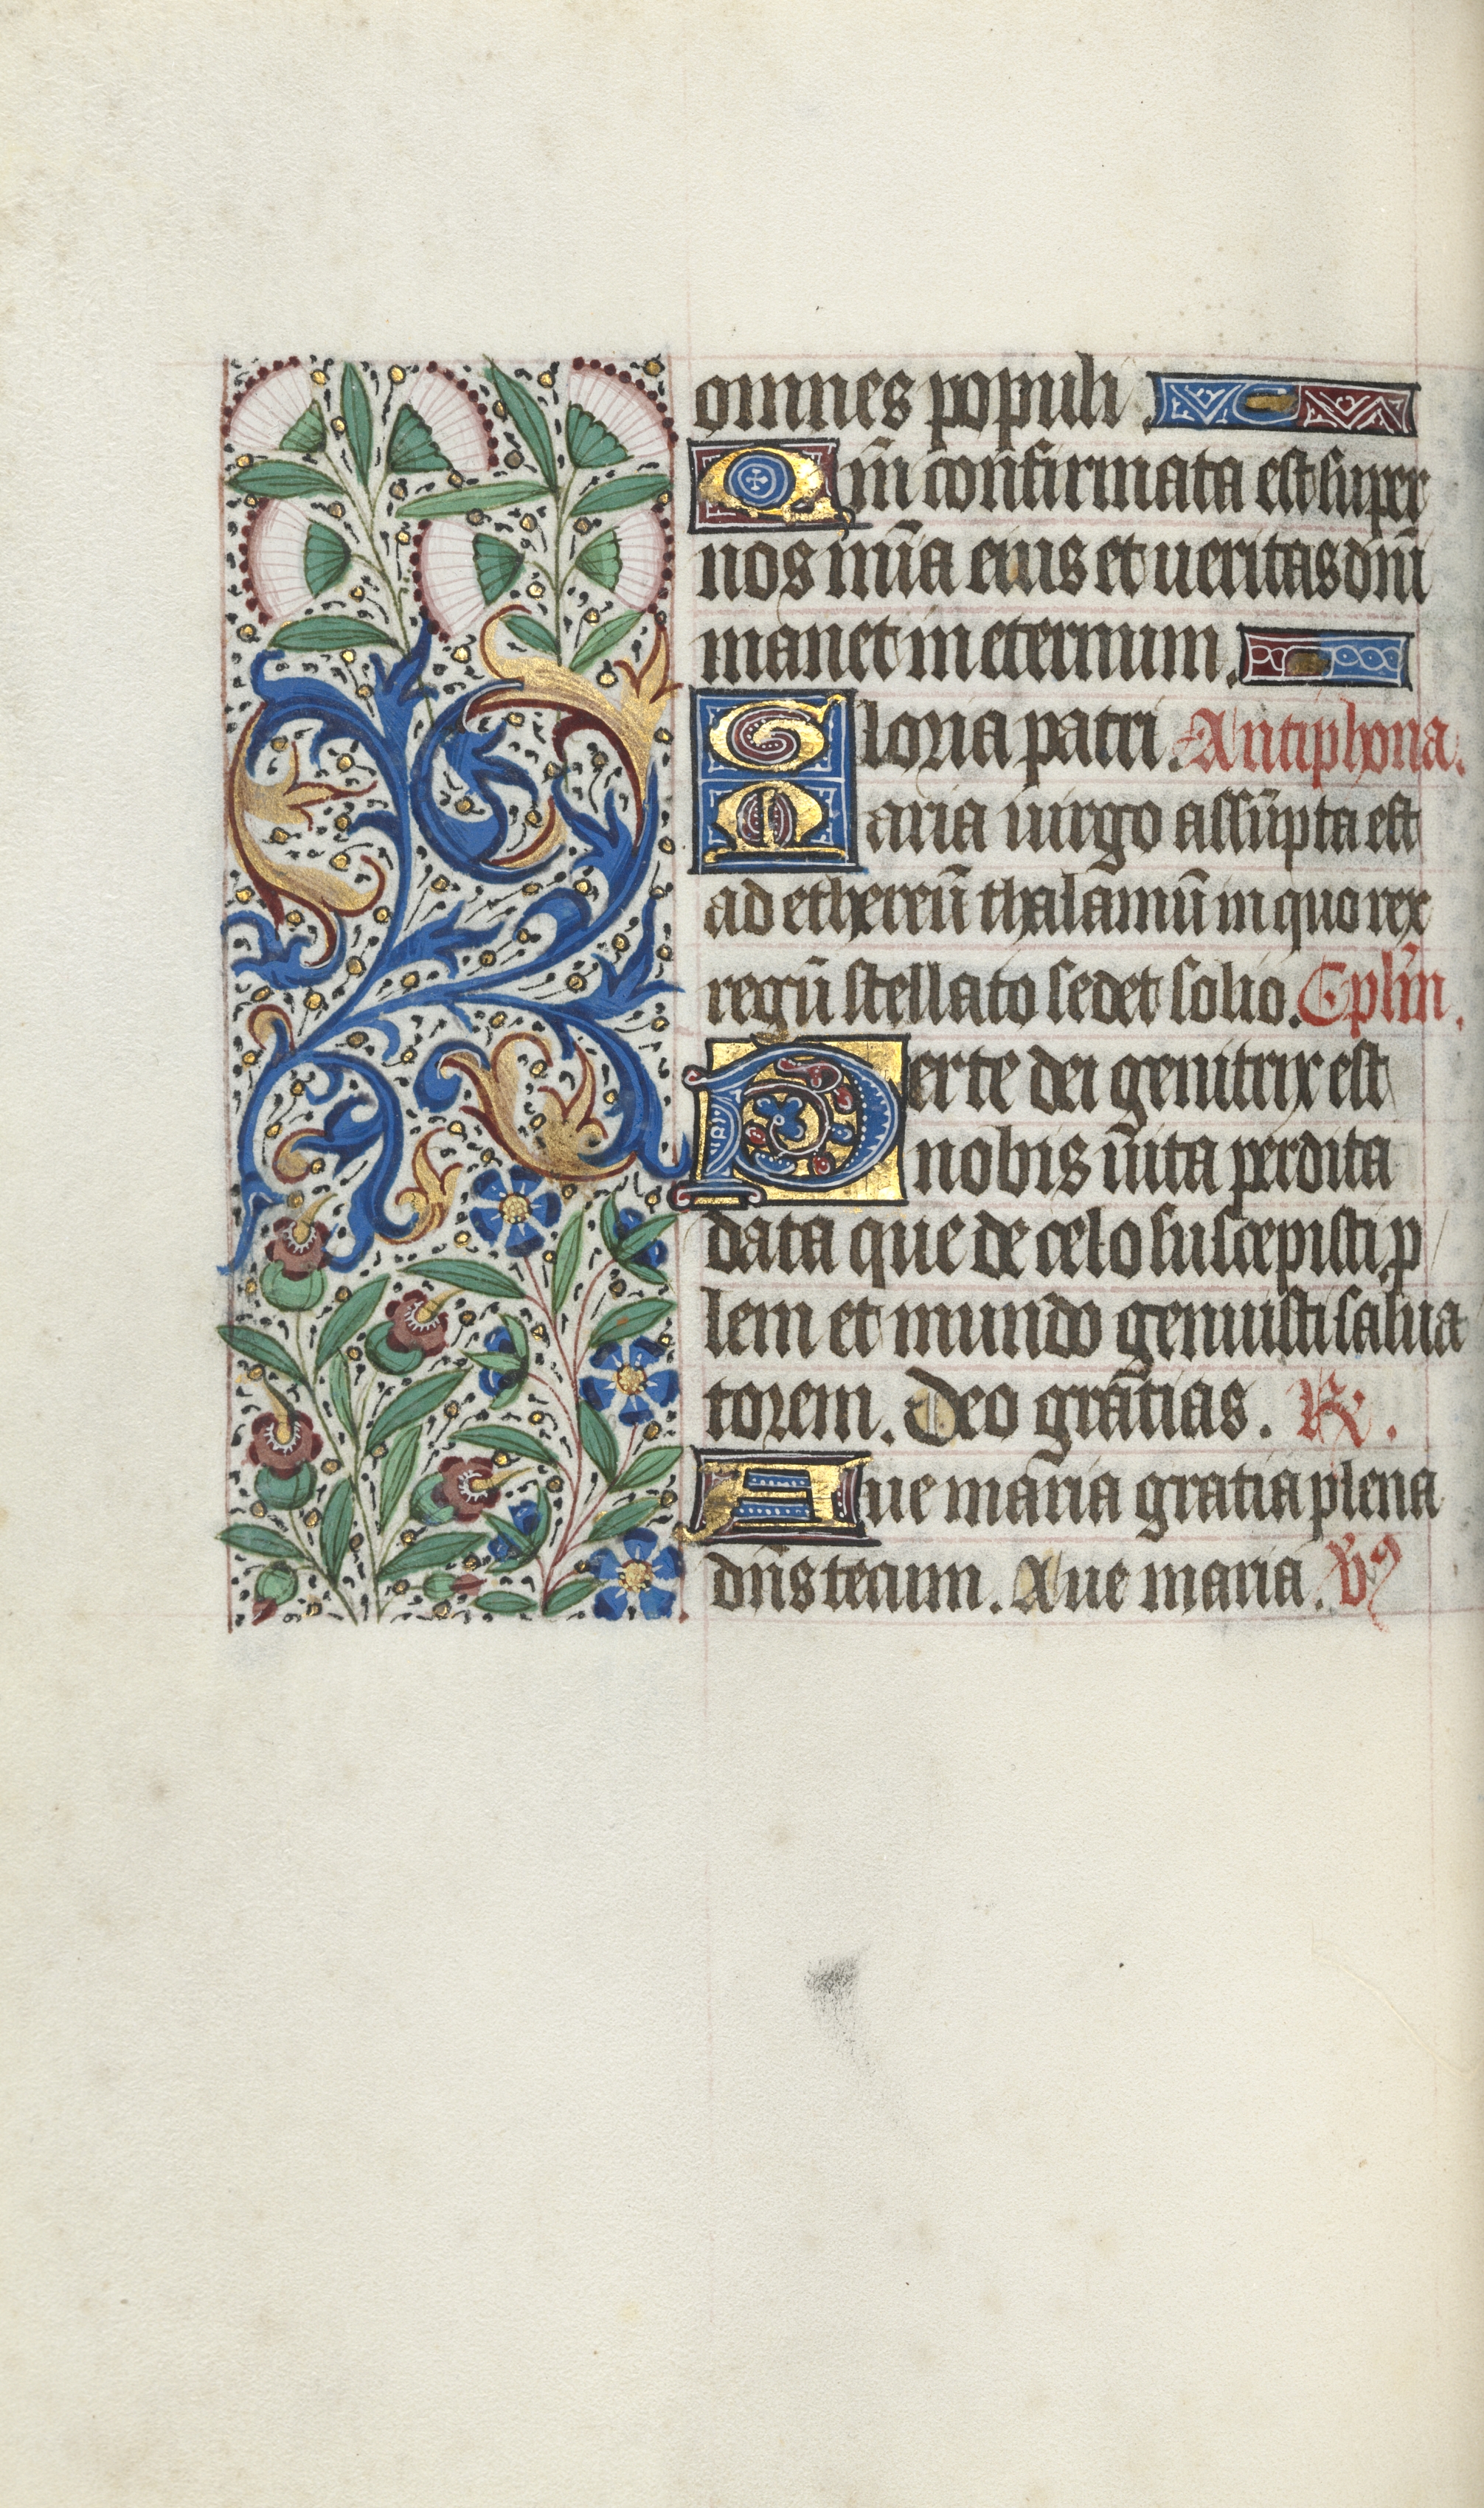 omnes populi.
Qm̄ confirmata est super
nos mīa eius et ueritas dn̄i
manet in eternum.
Gloria patri. Antiphona.
Maria uirgo assūpta est
ad ethereū thalamū in quo rex
regū stellato sedet solio. Eplīn.
Perte dei genitrix est
nobis uīta perdita
data que de celo suscepisti p
lem et mundo genuisti salua
torem. Deo grātias. R.
Aue maria gratia plena
dn̄s tecum. Aue maria. V